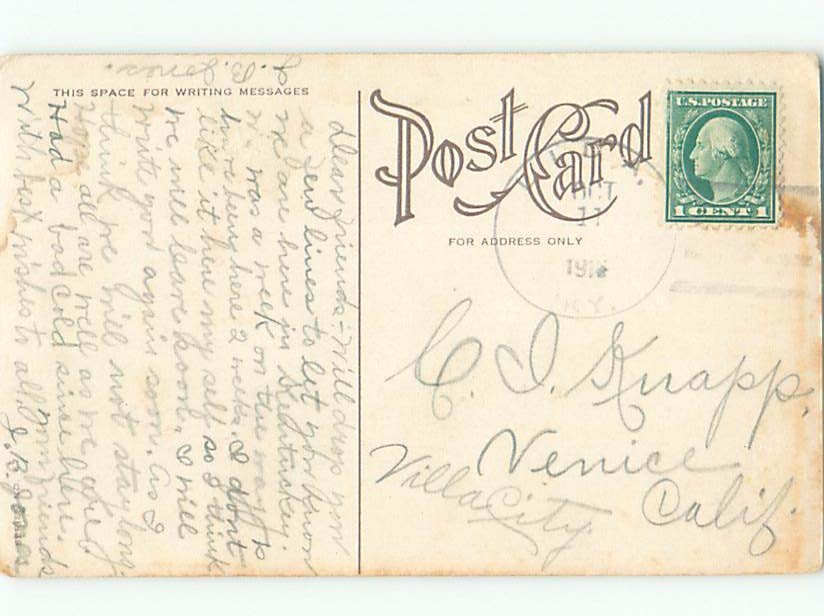 THIS SPACE FOR WRITING MESSAGES
Dear Friends:- Will drop you
a few lines to let you know
we are here in Kentuckey.
was a week on the way
have being here 2 weeks. I dont
like it here my self so I think
we will leave soon, I will
write you again soon. As I
think we will not stay long.
Hope all are well as we are
Had a bad cold since here.
With best wishes to all. your friends
J. B. Jones
Post Card
FOR ADDRESS ONLY
U.S. POSTAGE
1 CENT 1
OCT
11
KY.
C. I. Knapp.
Venice
Villa City.
Calif.